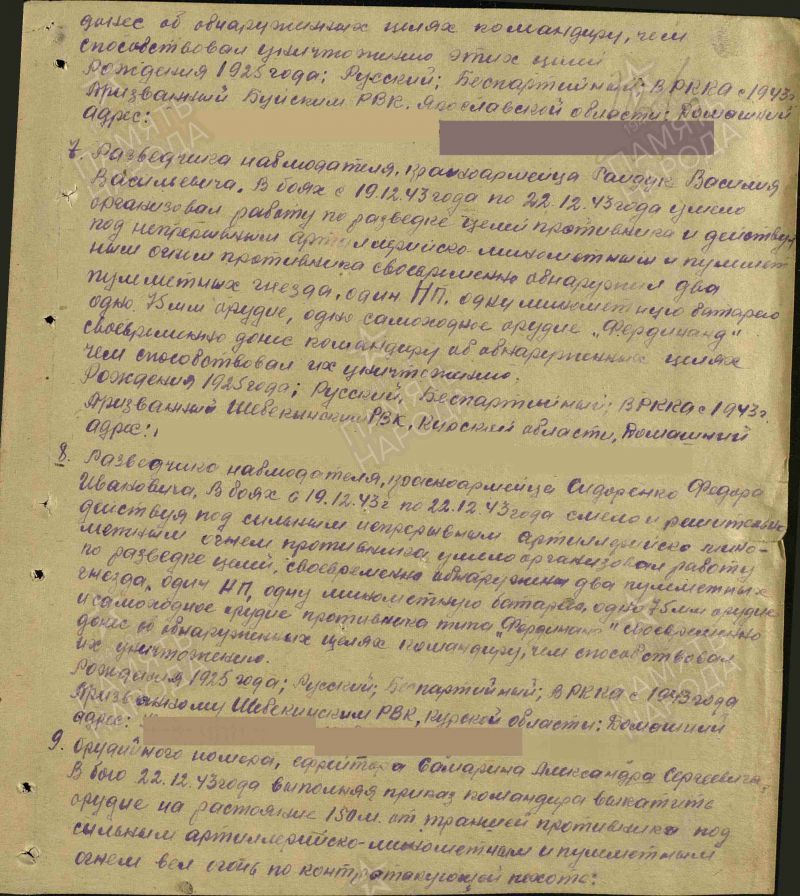 донес об обнаруженных целях командиру, чем
способствовал уничтожению этих целей
Рождения 1925 года; Русский; Беспартийный; В РККА с 1943г.
Призванный Буйским РВК, Ярославской области; Домашний
адрес:
7. Разведчика наблюдателя, красноармейца Гайдук Василия
Васильевича. В боях с 19.12.43 года по 22.12.43 года умело
организовал работу по разведке целей противника и действуя
под непрерывным артиллерийско-минометным и пулемет
ным огнем противника своевременно обнаружил два
пулеметных гнезда, один НП, одну минометную батарею
одно 75мм орудие, одно самоходное орудие „Фердинанд"
своевременно донес командиру об обнаруженных целях
чем способствовал их уничтожению.
Рождения 1925 года; Русский, Беспартийный; В РККА с 1943г.
Призванный Шебекинским РВК, Курской области, Домашний
адрес:
8. Разведчика наблюдателя, красноармейца Сидоренко Федора
Ивановича. В боях с 19.12.43г по 22.12.43 года смело и решительно
действуя под сильным непрерывным артиллерийско мино-
метным огнем противника умело организовал работу
по разведке целей, своевременно обнаружил два пулеметных
гнезда, один НП, одну минометную батарею, одно 75мм орудие
и самоходное орудие противника типа „Фердинант" своевременно
донес об обнаруженных целях командиру, чем способствовал
их уничтожению.
Рождения 1925 года; Русский; Беспартийный; В РККА с 1943 года
Призванному Шебекинским РВК, Курской области; Домашний
адрес:
9. Орудийного номера, ефрейтора Самарина Александра Сергеевича,
В бою 22.12.43 года выполняя приказ командира выкатить
орудие на растояние 150м. от траншей противника под
сильным артиллерийско-минометным и пулеметным
огнем вел огонь по контратакующей пехоте:
ПАМЯТЬ НАРОДА